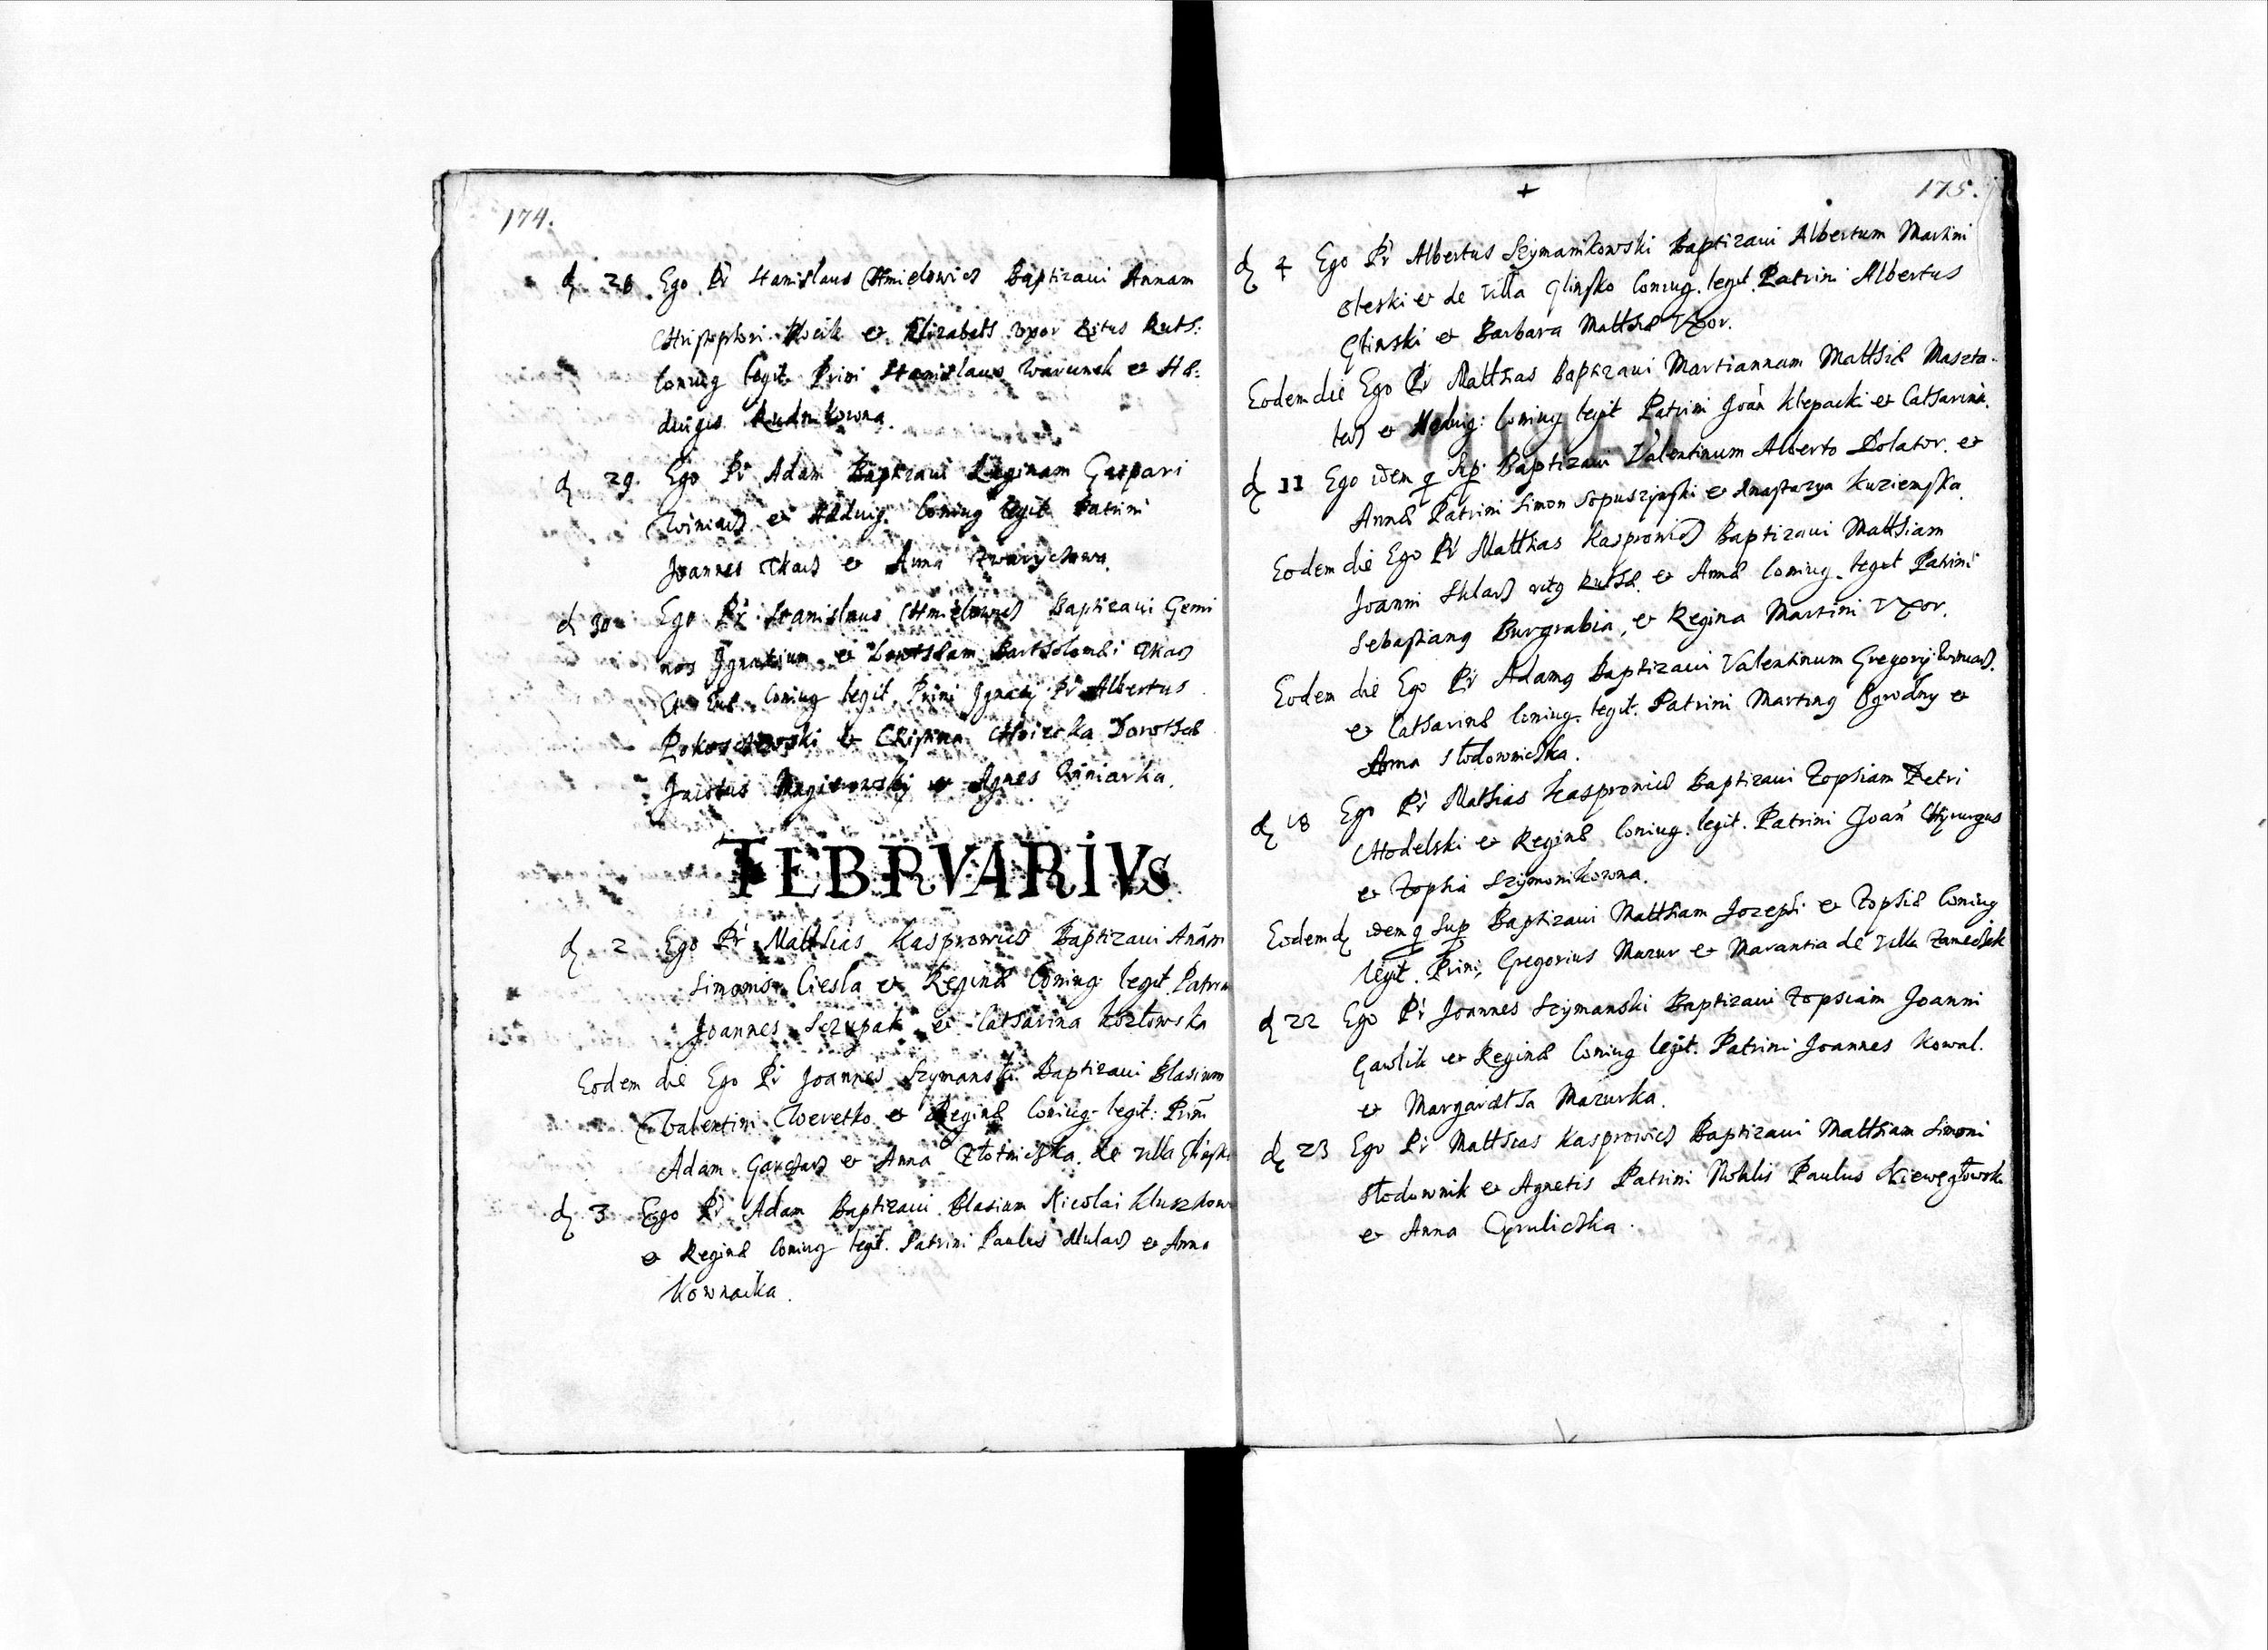 174.
d 26 Ego Pr Stanislaus Chmielowicz Baptizaui Annam
Christophori Kocik et Elizabeth vxor Ritus Ruth:
Coniug legit Prini Stanislaus Warunek et He:
duigis Rudnikowna.
d 29. Ego Pr Adam Baptizaui Reginam Gaspari
Winiarz et Heduig. Coniug legit Patrini
Joannes Tkacz et Anna
d 30 Ego Pr Stanislaus Chmielowicz Baptizaui Gemi
nos Ignatium et Bartholomei Tkacz
et Coniug legit Prini Ignacij Pr Albertus
et Dorothea
et Agnes Winiarka.
FEBRVARIVs
d 2 Ego Pr Matthias Kasprowicz Baptizaui Anam
Simonis Ciesla et Regina Coniug legit Patrin
Joannes Szzupak et Catharina Kozłowska
Eodem die Ego Pr Joannes Szymanski Baptizaui Blasium
Valentini Weretko et Regina Coniug. legit: Prini
Adam Garczarz et Anna Złotniczka de villa
d 3 Ego Pr Adam Baptizaui Blasium Nicolai
et Regina Coniug legit. Patrini Paulus Mularz et Anna
Kownacka.
175.
d 4 Ego Pr Albertus Szymanikowski Baptizaui Albertum Martini
Oleski et de Villa Glinsko Coniug. legit. Patrini Albertus
Glinski et Barbara Matthiæ Vxor.
Eodem die Ego Pr Matthias Baptizaui Martiannum Matthiæ Maszta-
lerz et Heduig: Coniug legit Patrini Joan Klepacki et Catharina.
d 11 Ego idem q Sup Baptizaui Valentinum Alberto Dolator. et
Annæ Patrini Simon Sopuszynski et Anastazya Kuziemska.
Eodem die Ego Pr Matthias Kasprowicz Baptizaui Matthiam
Joanni Sklarz ritg Ruthæ. et Annæ Coniug. legit Patrini
Sebastiang Burgrabia, et Regina Martini Vxor.
Eodem die Ego Pr Adamg Baptizaui Valentinum Gregorij Winiarz.
et Catharinæ Coniug. legit. Patrini Marting Ogrodny et
Anna Słodowniczka.
d 18 Ego Pr Mathias Kasprowicz Baptizaui Zophiam Petri
Chodelski et Reginæ Coniug. legit. Patrini Joan Chyrurgus
et Zophia Szymonikowna.
Eodem d idem q Sup Baptizaui Matthiam Jozephi et Zophiæ Coniug
legit. Prini, Gregorius Mazur et Marantia de Villa Zameczek
d 22 Ego Pr Joannes Szymanski Baptizaui Zophiam Joanni
Gawlik et Reginæ Coniug legit. Patrini Joannes Kowal.
et Margaretha Mazurka.
d 23 Ego Pr Matthias Kasprowicz Baptizaui Matthiam Simoni
Słodownik et Agnetis Patrini Nobilis Paulus
et Anna Cyruliczka.